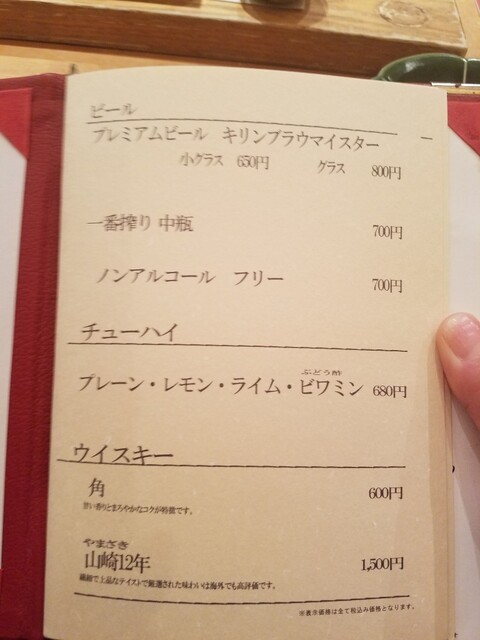 ビール
プレミアムビール　キリンブラウマイスター
小グラス　650円　グラス　800円
一番搾り 中瓶　700円
ノンアルコール　フリー　700円
チューハイ
ぶどう酢
プレーン・レモン・ライム・ビワミン　680円
ウイスキー
角　600円
甘い香りとまろやかなコクが特徴です。
やまざき
山崎12年　1,500円
繊細で上品なテイストで厳選された味わいは海外でも高評価です。
※表示価格は全て税込み価格となります。